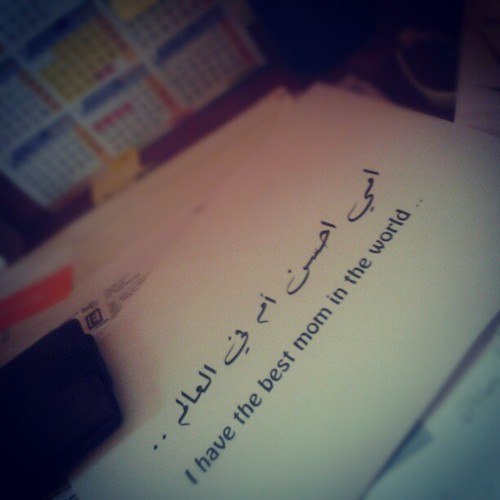 امي احسن أم في العالم ..
I have the best mom in the world ..